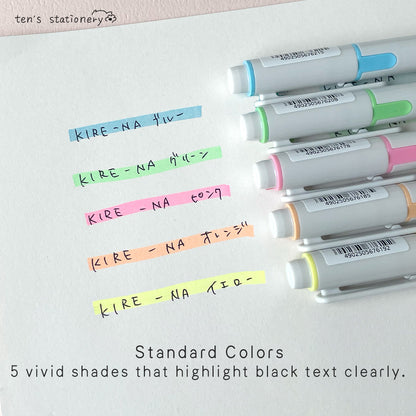 ten's stationery
KIRE-NA ブルー
KIRE-NA グリーン
KIRE - NA ピンク
KIRE - NA オレンジ
KIRE - NA イエロー
4902505676208
4902505676185
4902505676192
Standard Colors
5 vivid shades that highlight black text clearly.